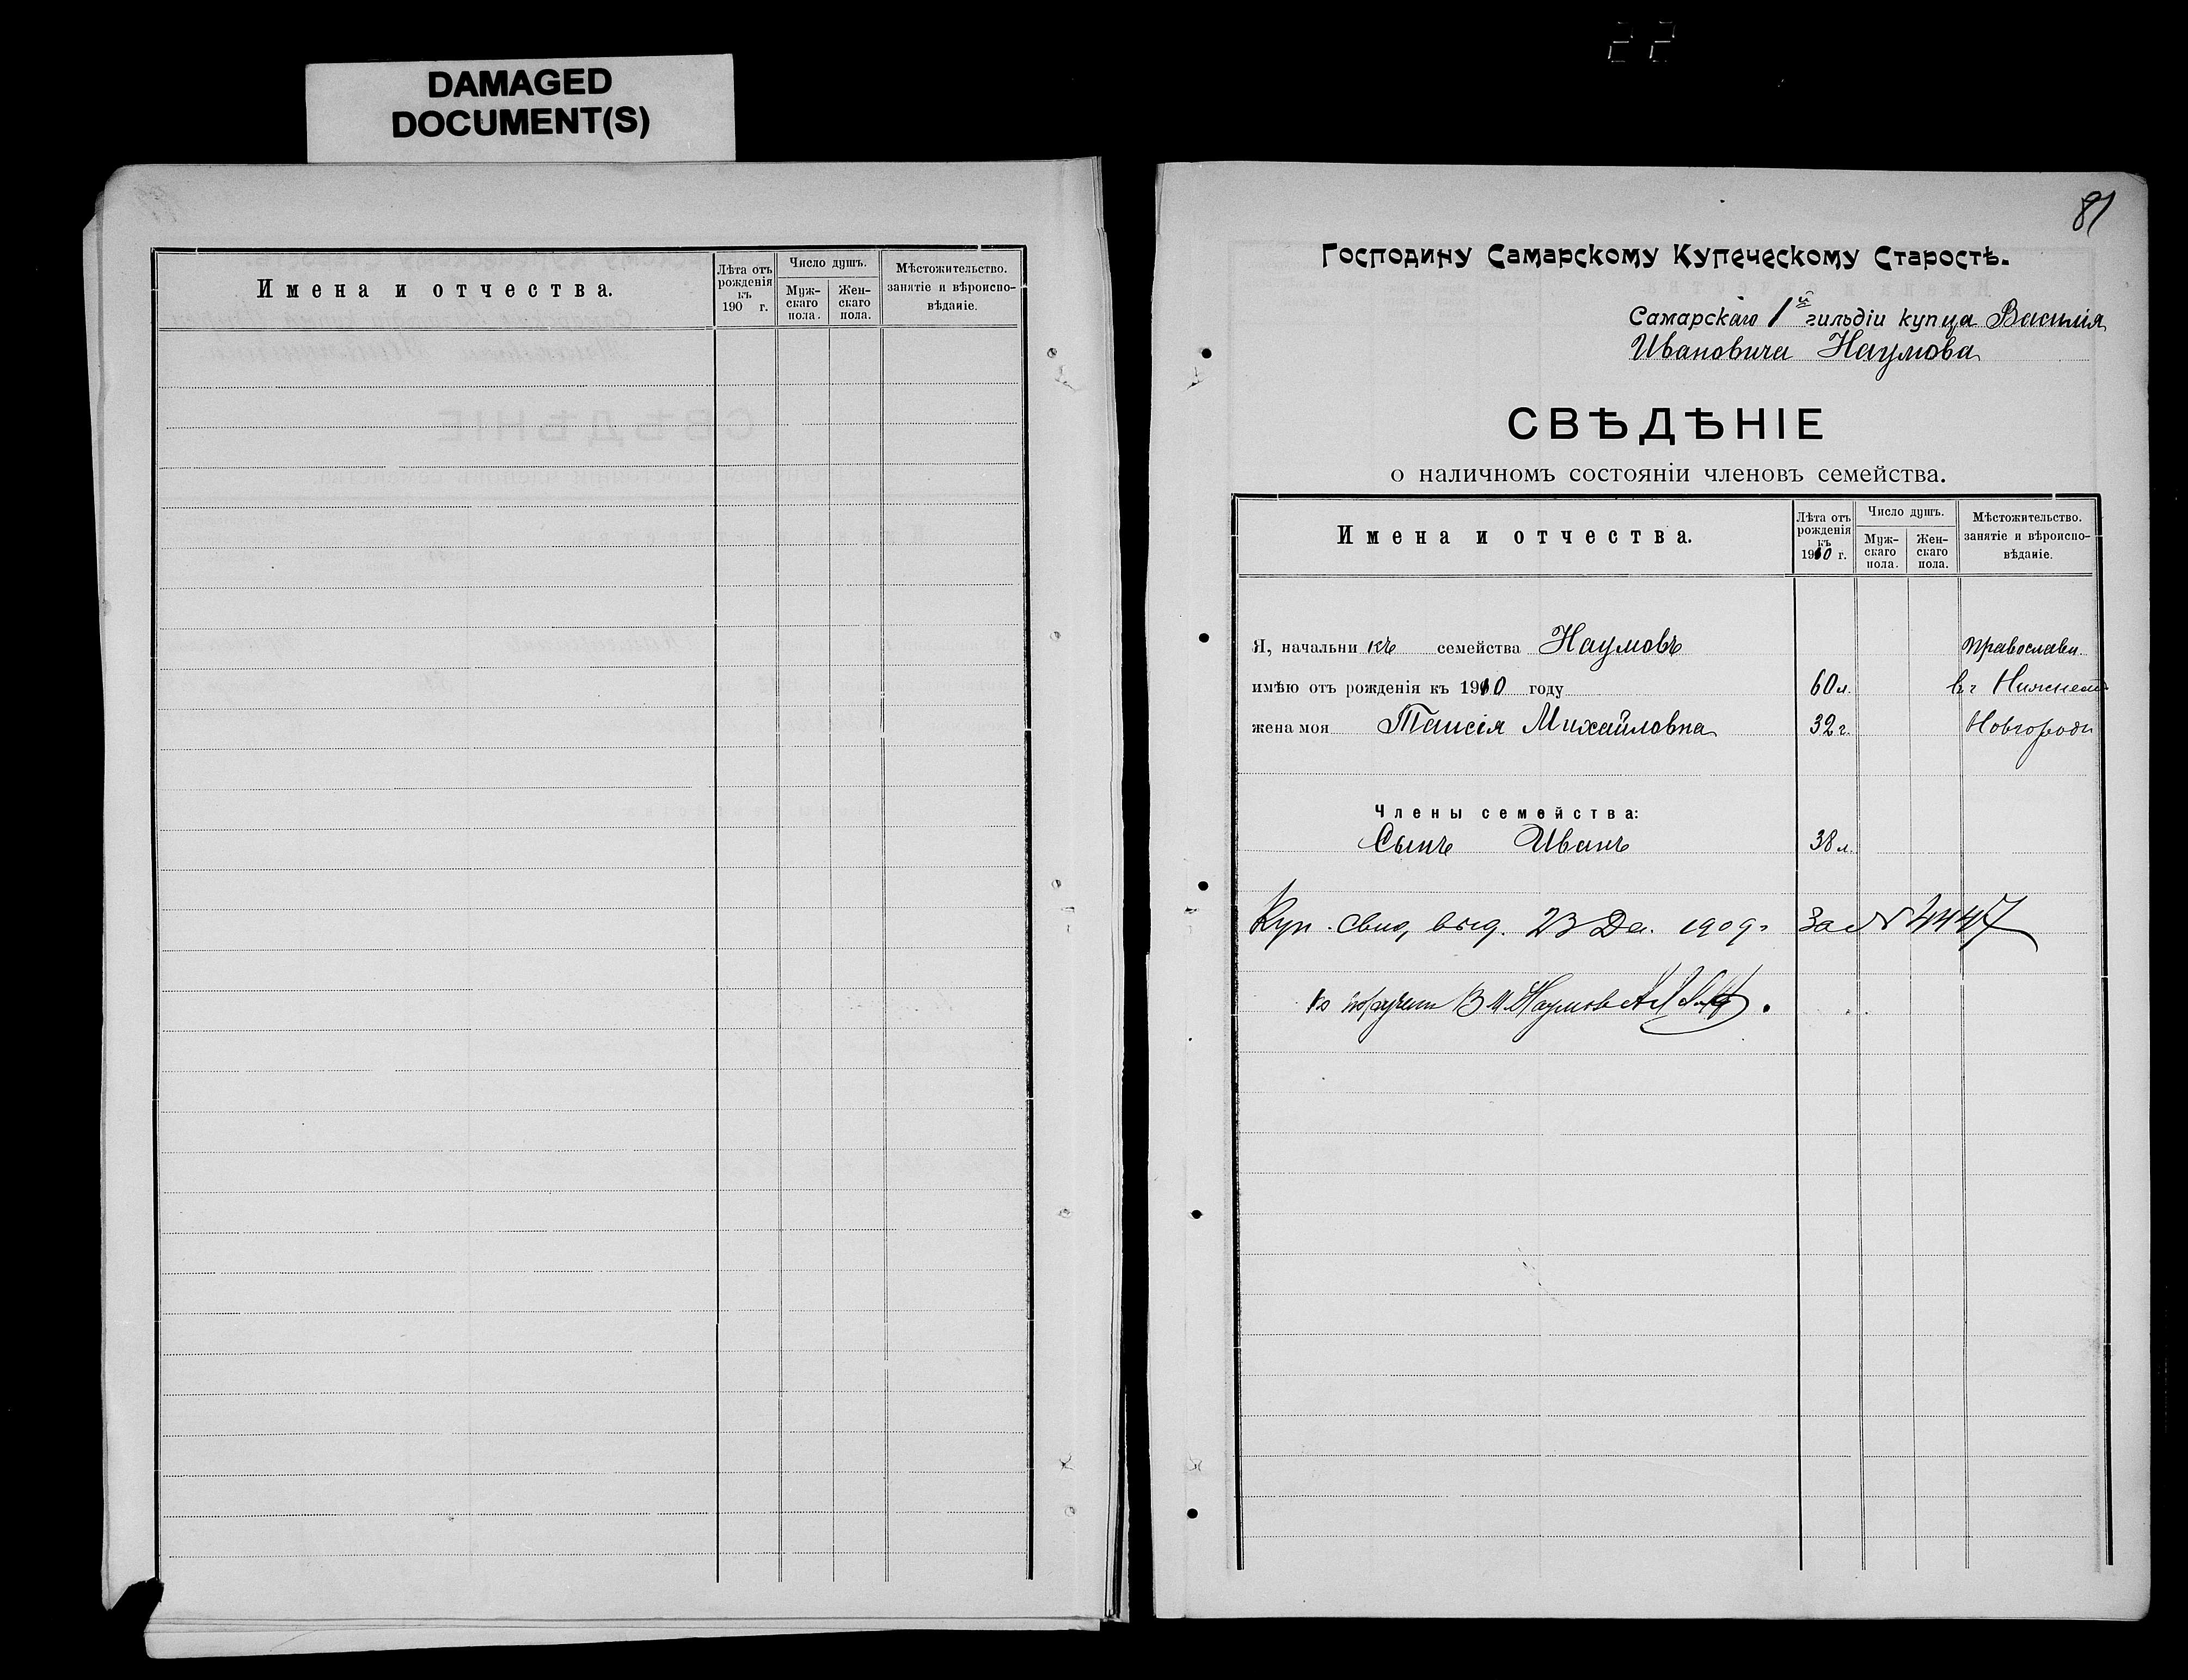 DAMAGED
DOCUMENT(S)
Имена и отчества.
Лѣта отъ рожденія къ 190 г.
Число душъ.
Муж-скаго пола.
Жен-скаго пола.
Мѣстожительство. занятіе и вѣроиспо-вѣданіе.
81
Господину Самарскому Купеческому Старостѣ.
Самарскаго 1й гильдіи купца Василія
Ивановича Наумова
СВѢДѢНІЕ
о наличномъ состояніи членовъ семейства.
Имена и отчества.
Лѣта отъ рожденія къ 1910 г.
Число душъ.
Муж-скаго пола.
Жен-скаго пола.
Мѣстожительство. занятіе и вѣроиспо-вѣданіе.
Я, начальникъ семейства Наумовъ Православн.
имѣю отъ рожденія къ 1910 году 60 л. въ Нижнемъ
жена моя Таисія Михайловна 32 г. Новгородѣ
Члены семейства:
Сынъ Иванъ 38 л.
Куп. свид. выд. 23 Де. 1909 г. За №
В И Наумова